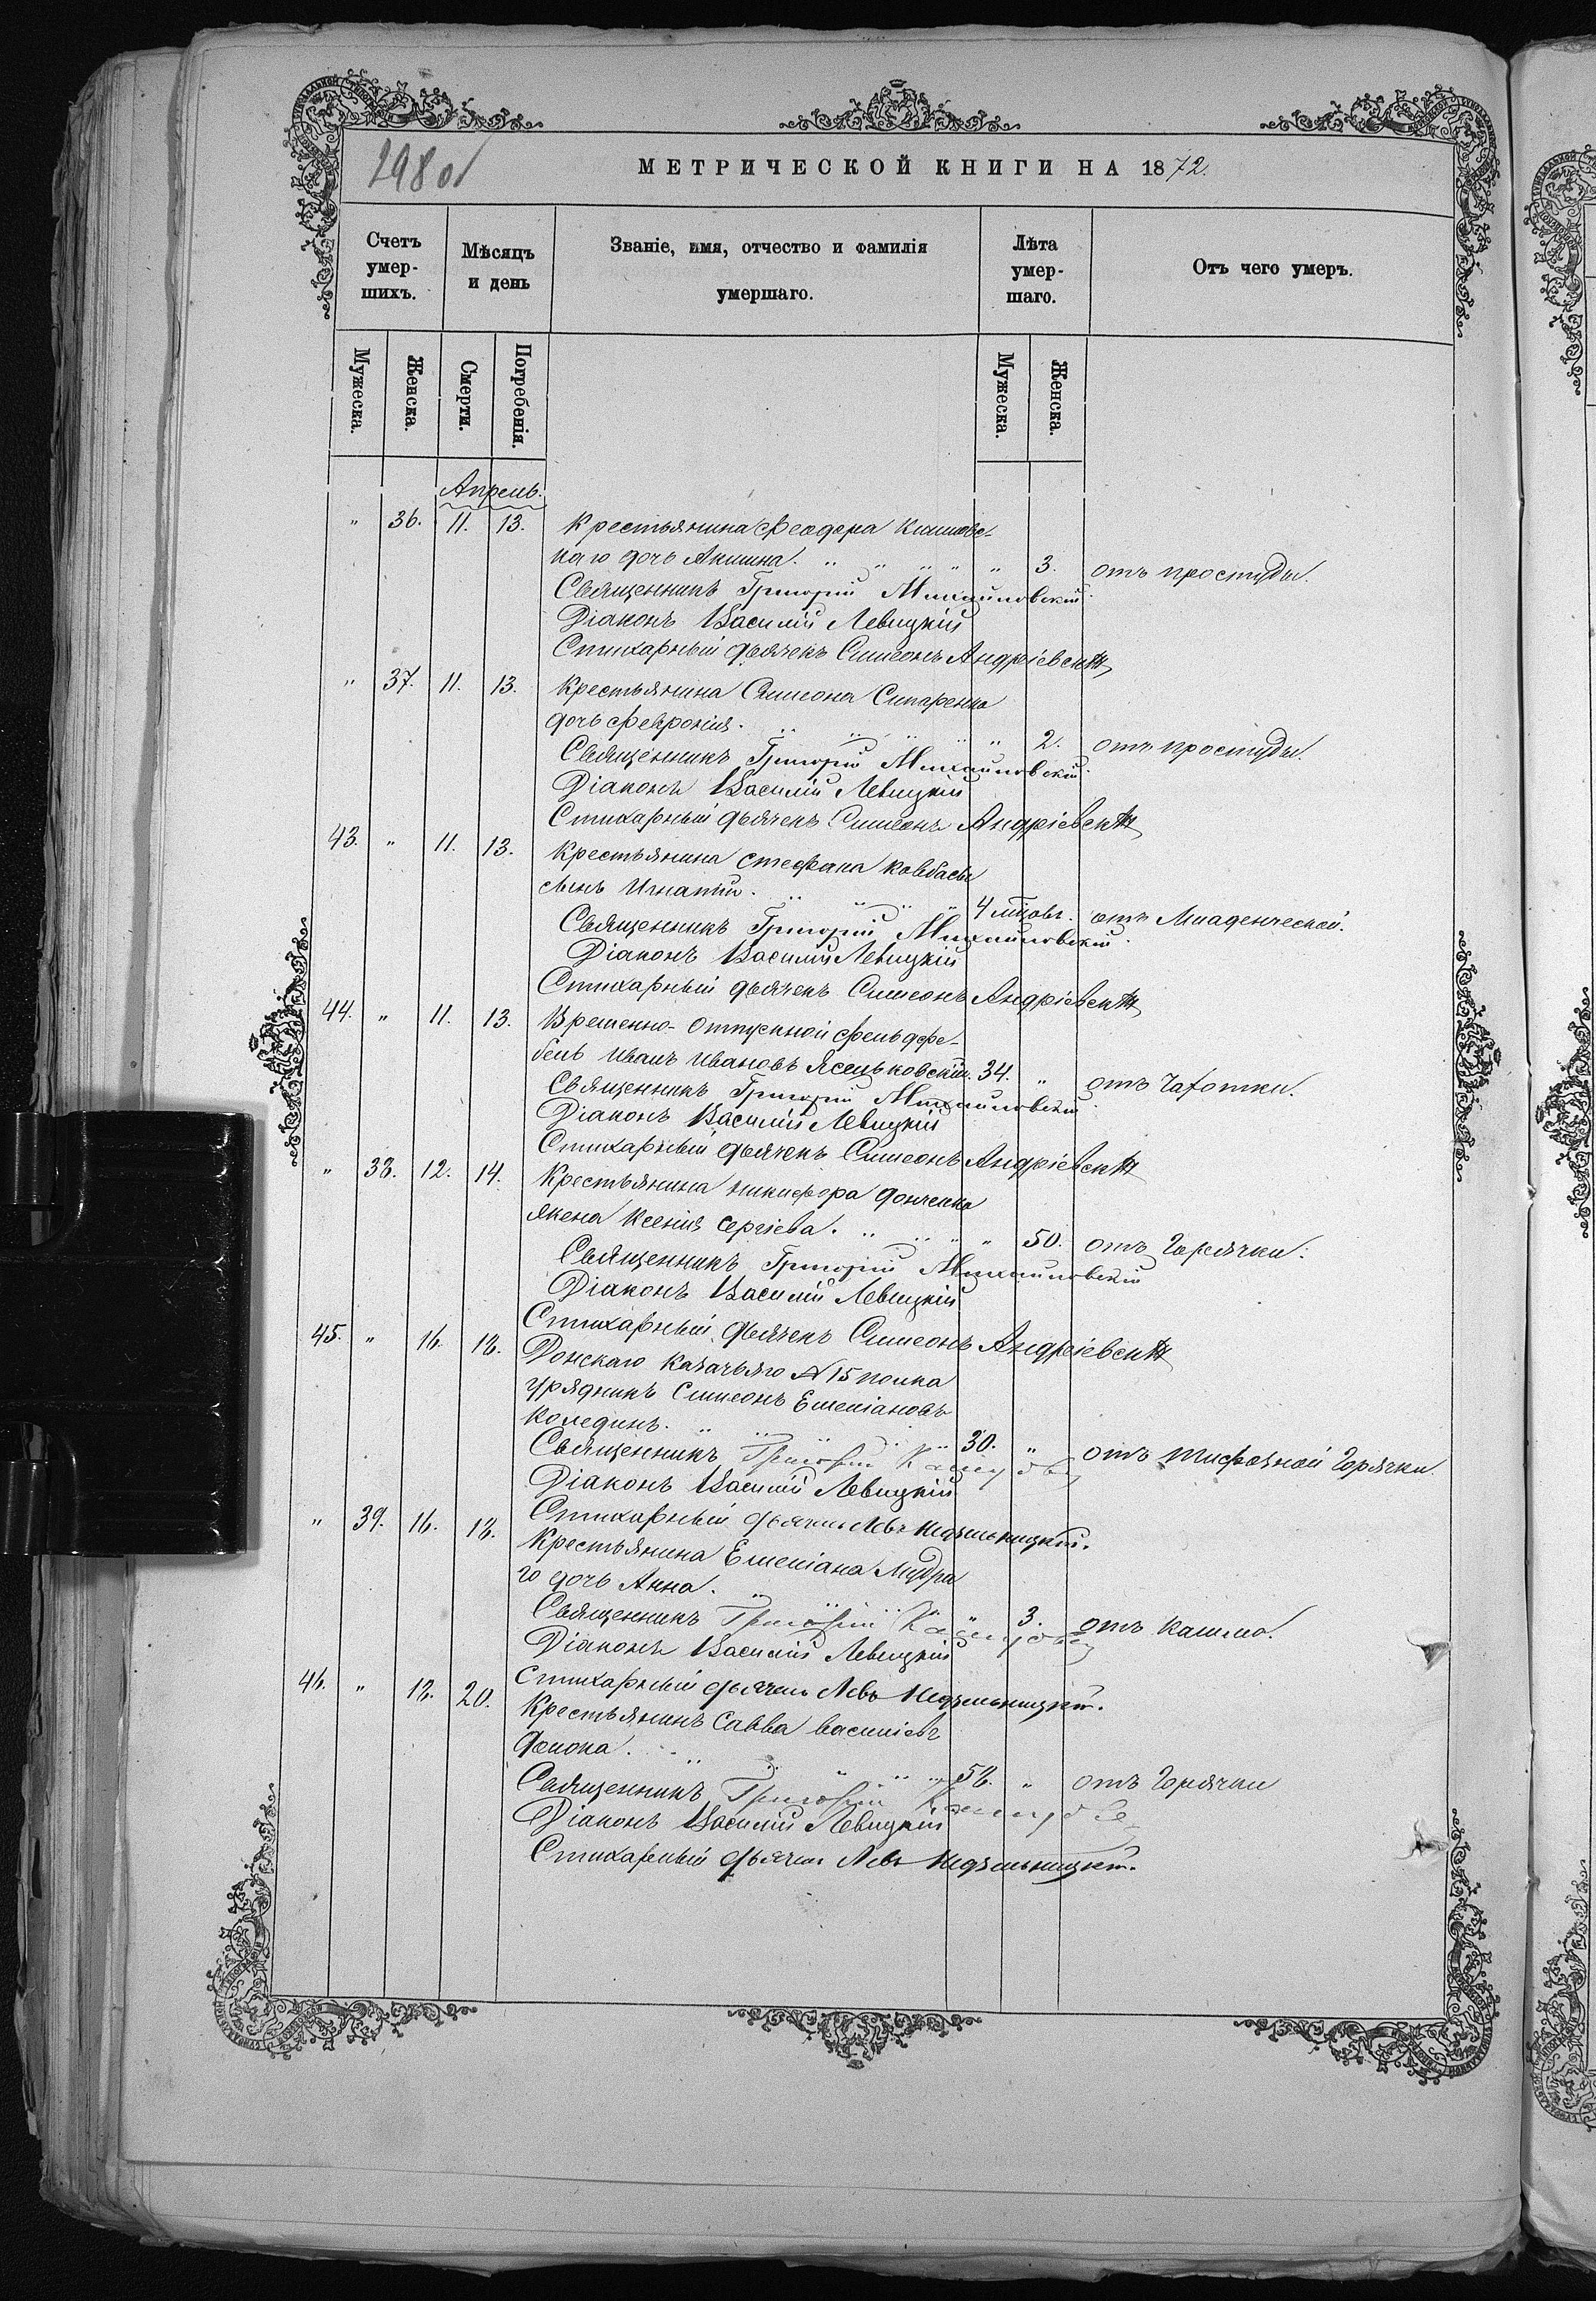 298 об
МЕТРИЧЕСКОЙ КНИГИ НА 1872.
Счетъ умер-шихъ.
Мѣсяцъ и день
Званіе, имя, отчество и фамилія умершаго.
Лѣта умер-шаго.
Отъ чего умеръ.
Мужеска.
Женска.
Смерти.
Погребенія.
Мужеска.
Женска.
Апрель.
" 36. 11. 13. Крестьянина Феодора
каго дочь Акилина. " 3. отъ простуды.
Священникъ Григорій Михайловскій.
Діаконъ Василій Левицкій
Стихарный дьячекъ Симеонъ Андріевскій
" 37. 11. 13. Крестьянина Симеона Сипаренка
дочь Феврония. " 2. отъ простуды.
Священникъ Григорій Михайловскій.
Діаконъ Василій Левицкій
Стихарный дьячекъ Симеонъ Андріевскій
43. " 11. 13. Крестьянина Стефана Ковбасы
сынъ Игнатій. 4 отъ Младенческой.
Священникъ Григорій Михайловскій.
Діаконъ Василій Левицкій
Стихарный дьячекъ Симеонъ Андріевскій
44. " 11. 13. Временно-отпускной Фельдфе-
бель Иванъ Ивановъ Ясеньковскій. 34. " отъ Чахотки.
Священникъ Григорій Михайловскій.
Діаконъ Василій Левицкій
Стихарный дьячекъ Симеонъ Андріевскій
" 38. 12. 14. Крестьянина Никифора Донченка
жена Ксенія Сергіева. " 50. отъ Горячки.
Священникъ Григорій Михайловскій
Діаконъ Василій Левицкій
Стихарный дьячекъ Симеонъ Андріевскій
45. " 16. 18. Донскаго Казачьяго №15 полка
урядникъ Симеонъ Емеліановъ
Колединъ. 30. " отъ тифозной Горячки.
Священникъ Григорій
Діаконъ Василій Левицкій
Стихарный дьячекъ Левъ Недзельницкій.
" 39. 16. 18. Крестьянина Емеліана Мудра
го дочь Анна. " 3. отъ кашлю.
Священникъ Григорій
Діаконъ Василій Левицкій
Стихарный дьячекъ Левъ Недзельницкій.
46. " 18. 20. Крестьянинъ Савва Василіевъ
58. " отъ Горячки
Священникъ Григорій
Діаконъ Василій Левицкій
Стихарный дьячекъ Левъ Недзельницкій.